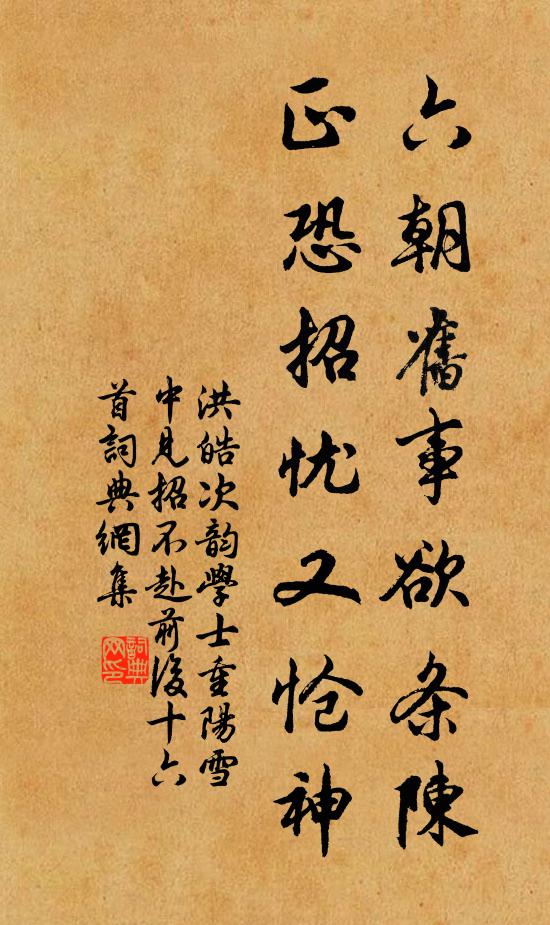 六朝舊事欲条陳
正恐招忧又怆神
洪皓次韵學士重陽雪
中見招不赴前後十六
首詞典網集
詞典网印